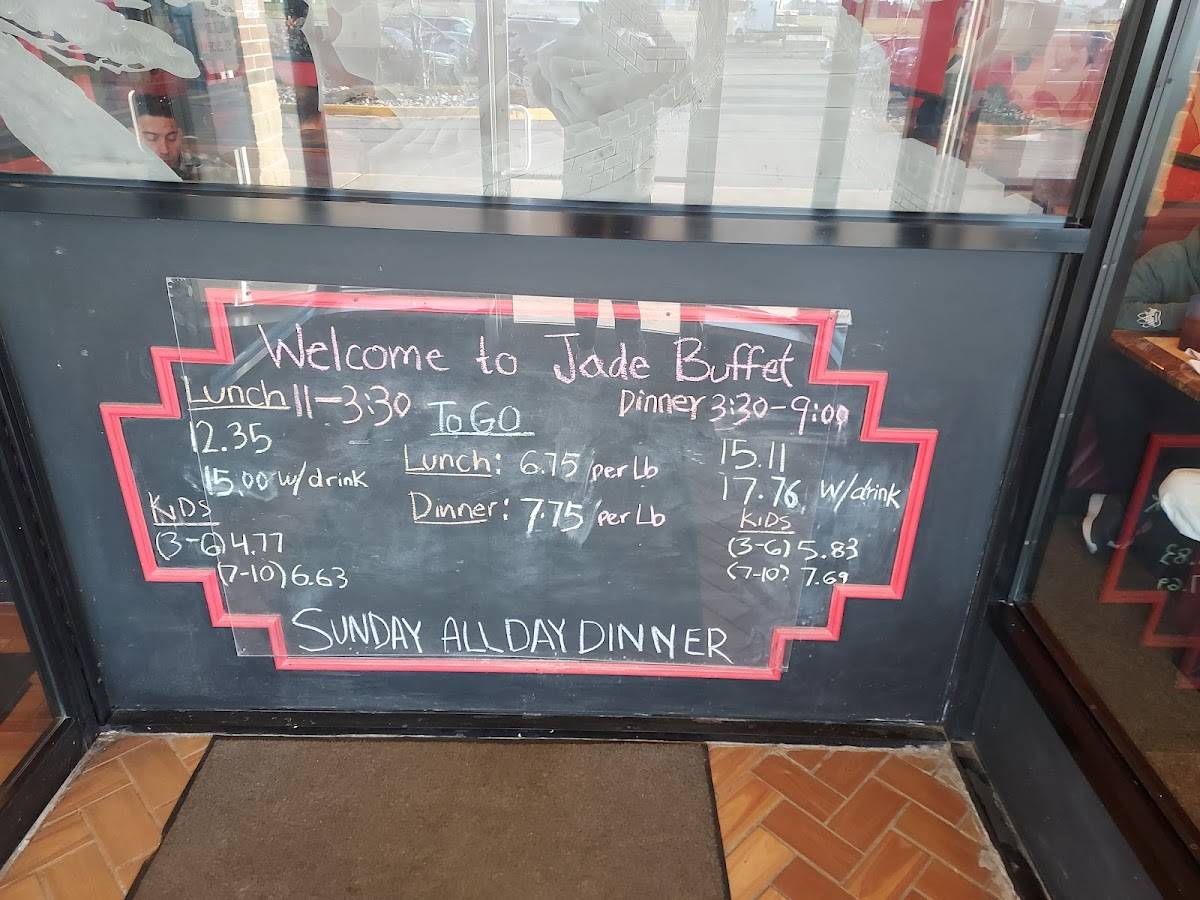 Welcome to Jade Buffet
Lunch 11-3:30
12.35
15.00 w/drink
KiDS
(3-6) 4.77
(7-10) 6.63
To GO
Lunch: 6.75 per Lb
Dinner: 7.75 per Lb
Dinner 3:30-9:00
15.11
17.76 w/drink
KiDS
(3-6) 5.83
(7-10) 7.69
SUNDAY ALL DAY DINNER